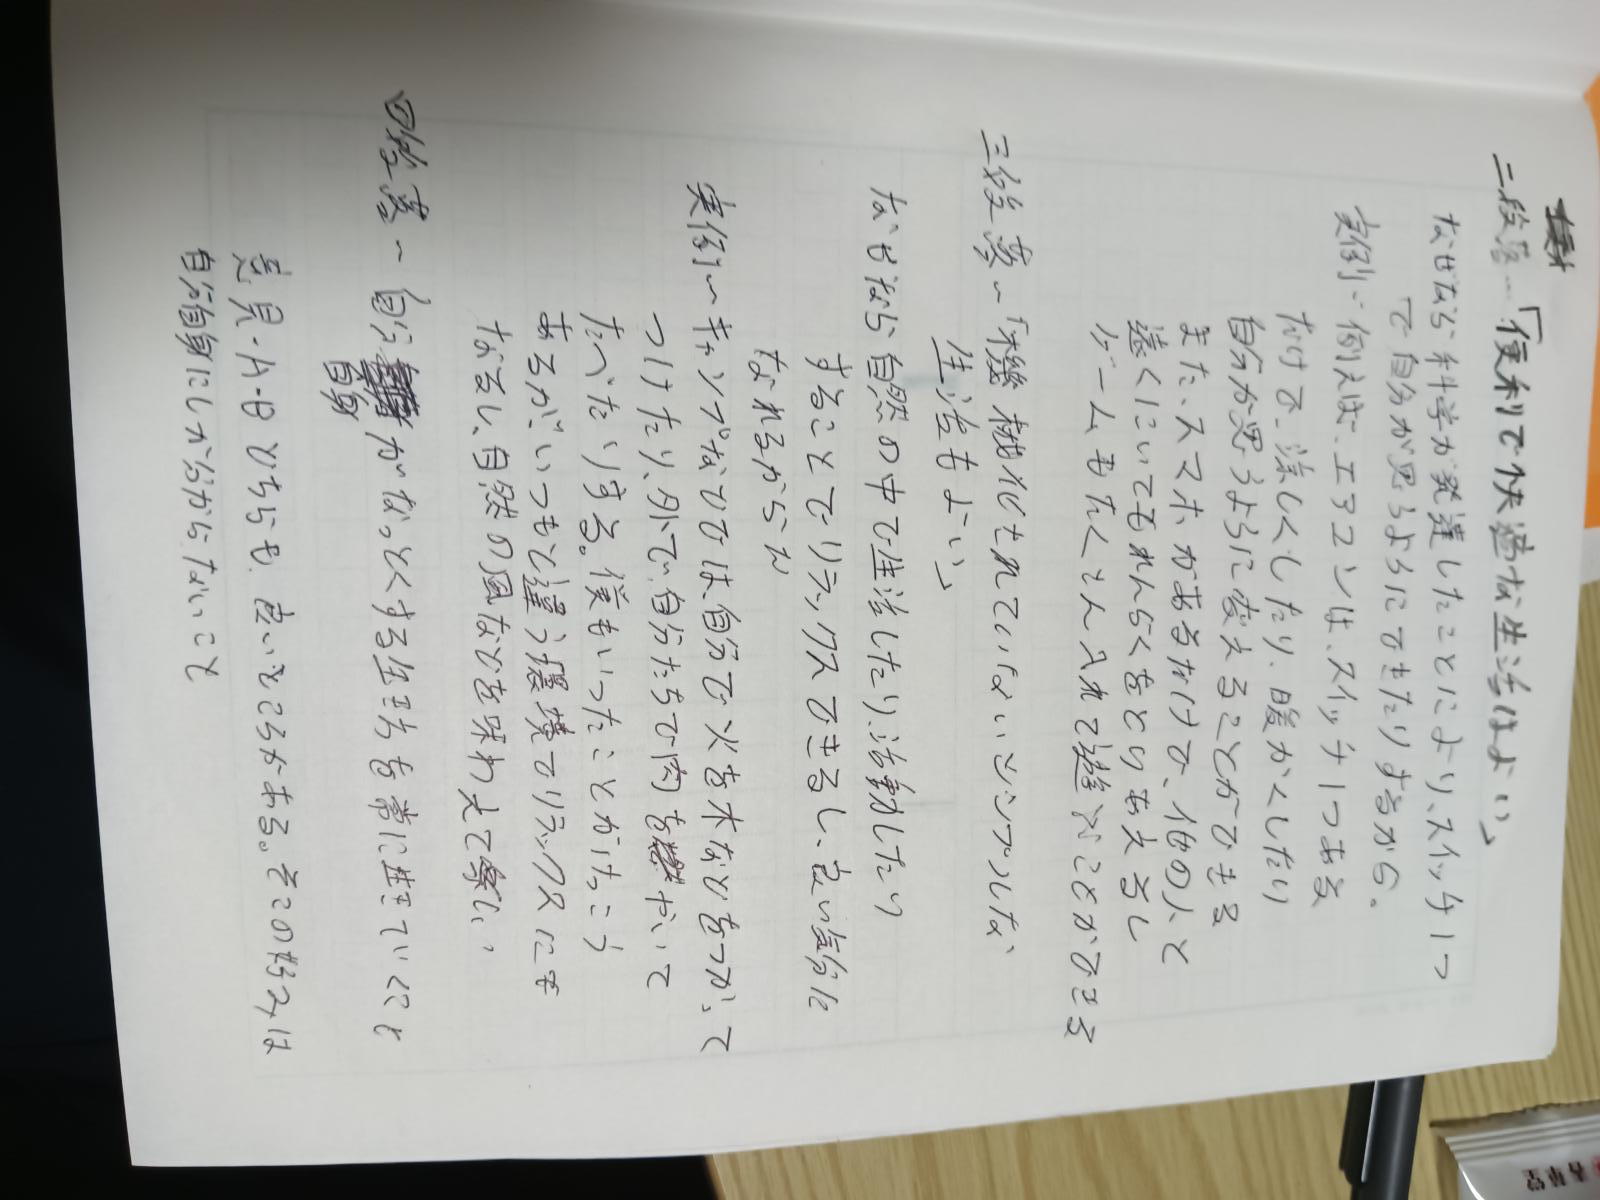 二段落…「便利で快適な生活はよい」
なぜなら科学が発達したことにより、スイッチ1つ
で自分が思うようにできたりするから。
実例… 例えば、エアコンは、スイッチ1つある
だけで、涼しくしたり、暖かくしたり
自分が思うように変えることができる
また、スマホがあるだけで、他の人と
遠くにいてもれんらくをとりあえるし
ゲームもたくさん入れて遊ぶことができる
三段落〜「機械化されていないシンプルな
生活もよい」
なぜなら自然の中で生活したり、活動したり
することでリラックスできるし、良い気分に
なれるから〜
実例〜キャンプなどでは、自分で火を木などをつかって
つけたり、外で、自分たちで肉をやいて
たべたりする。僕もいったことがけっこう
あるが、いつもと違う環境でリラックスにも
なるし、自然の風などを味わえて楽しい
四段落〜自分自身がなっとくする生き方を常に生きていくこと
意見・A・Bどちらも、良いところがある。その考えは
自分自身にしか分からないこと
吉東堂